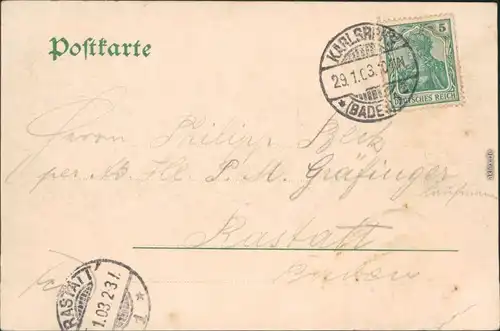 Postkarte
KARLSRUHE
29.1.03.
(BADEN)
5
DEUTSCHES REICH
Herrn Philipp Beck
per Ad. Hl. S. M. Gräfinger
Kaufmann
Rastatt
Baden
RASTATT
1.03 2